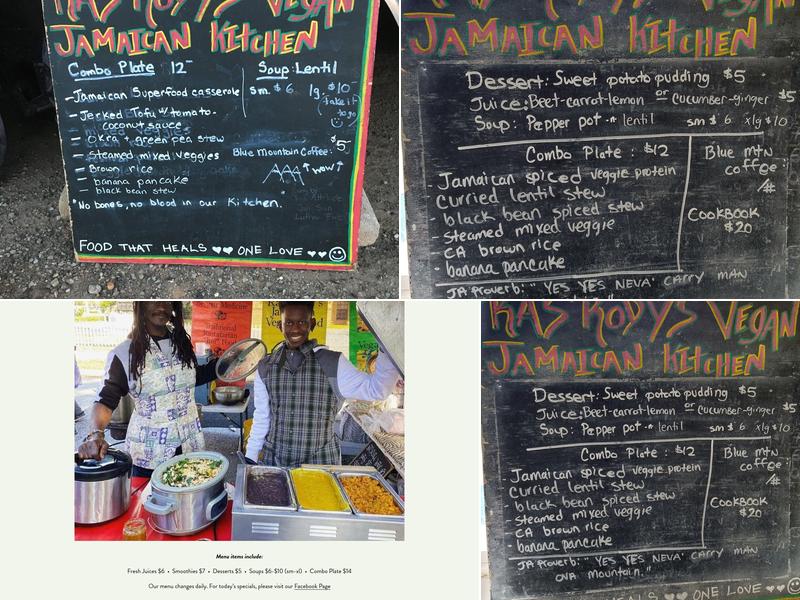 RAS RODYS VEGAN
JAMAICAN KITCHEN
Combo Plate 12-
Soup: Lentil
sm. $6 lg. $10-
(take it
to go
-Jamaican Superfood casserole
-Jerked Tofu w/ tomato-
coconut sauce
-Okra + green pea stew
-Steamed mixed veggies
-Brown rice
-banana pancake
-black bean stew
Blue Mountain Coffee: $5-
↑ wow ↑
"No bones, no blood in our Kitchen."
FOOD THAT HEALS ♥♥ ONE LOVE ♥♥
JAMAICAN KITCHEN
Dessert: Sweet potato pudding $5
Juice: Beet-carrot-lemon or cucumber-ginger $5
Soup: Pepper pot - lentil sm $6 xlg $10
Combo Plate: $12
Jamaican spiced veggie protein
Curried lentil stew
- black bean spiced stew
- steamed mixed veggie
CA brown rice
- banana pancake
Blue Mtn
coffee:
COOKBOOK
$20
JA Proverb: "YES YES NEVA' CARRY MAN
Menu items include:
Fresh Juices $6 • Smoothies $7 • Desserts $5 • Soups $6-$10 (sm-xl) • Combo Plate $14
Our menu changes daily. For today's specials, please visit our Facebook Page
RAS RODYS VEGAN
JAMAICAN KITCHEN
Dessert: Sweet potato pudding $5
Juice: Beet-carrot-lemon or cucumber-ginger $5
Soup: Pepper pot - lentil sm $6 xlg $10
Combo Plate: $12
Jamaican spiced veggie protein
Curried lentil stew
- black bean spiced stew
- steamed mixed veggie
CA brown rice
- banana pancake
Blue Mtn
coffee:
COOKBOOK
$20
JA Proverb: "YES YES NEVA' CARRY MAN
OVA Mountain."
HEALS ♥♥ ONE LOVE ♥♥